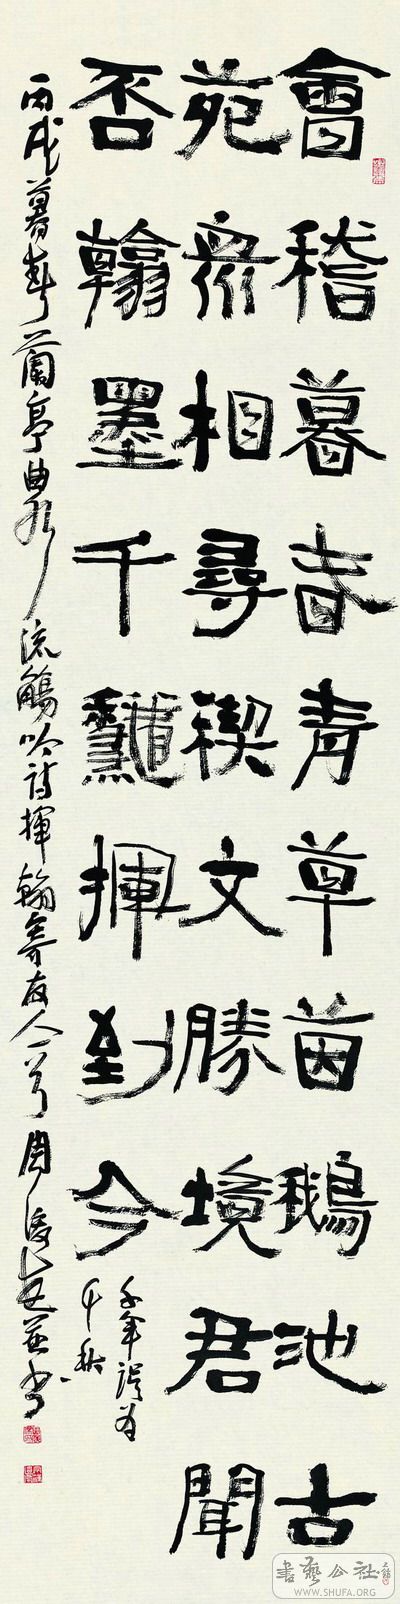 會稽暮春青草茵鵝池古
苑衆相尋禊文勝境君聞
否翰墨千龝揮到今
千年誤為
千秋
丙戌暮春蘭亭曲水流觴吟詩揮翰寄友人一首周俊杰並書
書藝公社
WWW.SHUFA.ORG